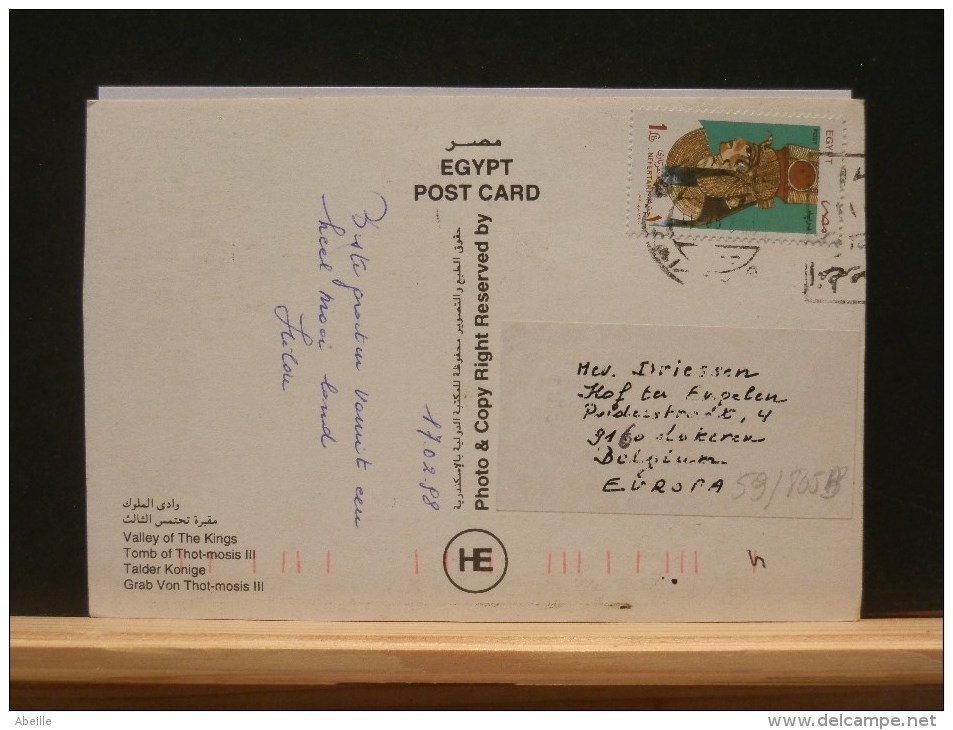 مصر
EGYPT
POST CARD
حقوق الطبع والتصوير محفوظة للمكتبة الدولية بالإسكندرية
Photo & Copy Right Reserved by
HE
EGYPT
مصر
1
NEFERTARI
1
Beste groeten vanuit een
heel mooi land
Hilde
17.02.98
Mev. Driessen
Hof ter Engelen
Polderstraat, 4
9160 Lokeren
Belgium
EUROPA
59/805B
وادى الملوك
مقبرة تحتمس الثالث
Valley of The Kings
Tomb of Thot-mosis III
Talder Konige
Grab Von Thot-mosis III
Abeille
www.delcampe.net